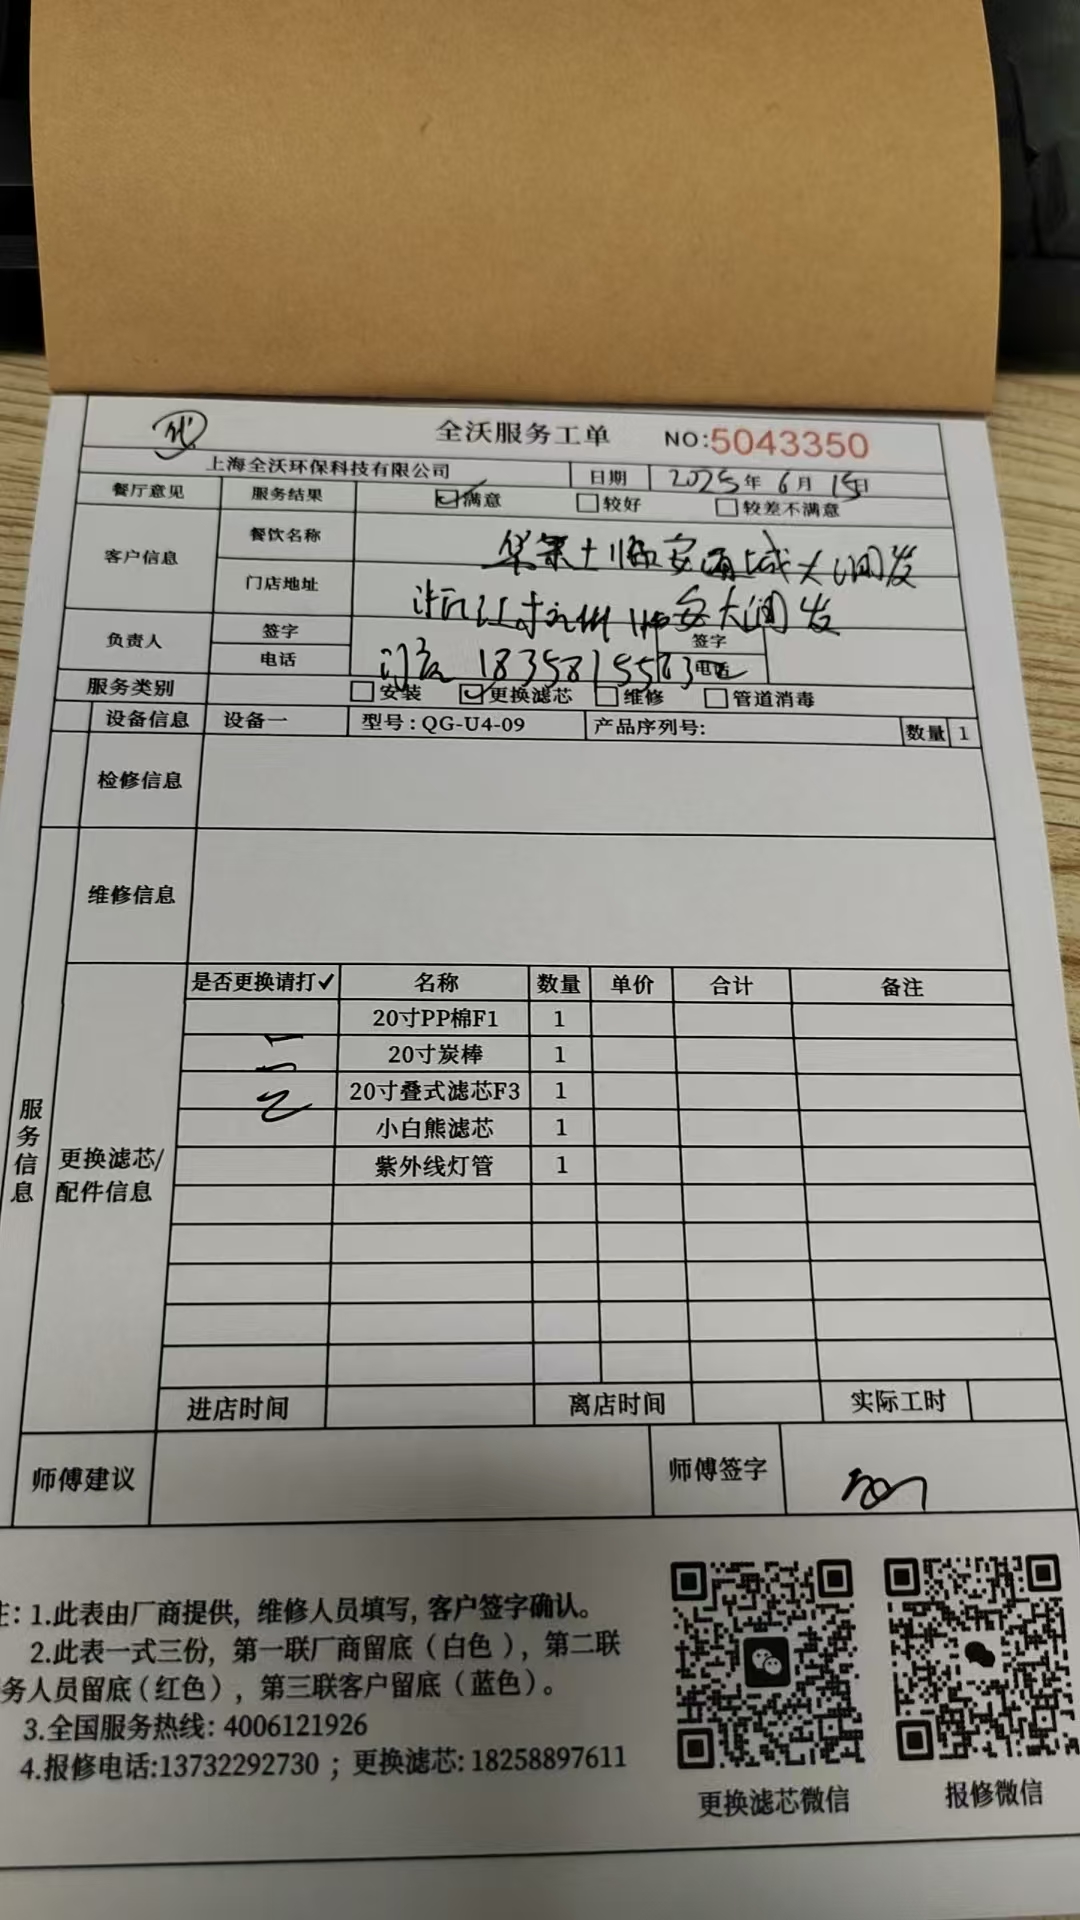 全沃服务工单 NO:5043350
上海全沃环保科技有限公司 日期 2025年6月15日
餐厅意见 服务结果 满意 较好 较差不满意
客户信息 餐饮名称 华莱士临安 城大润发
门店地址 浙江杭州临安大润发
负责人 签字 签字
电话 电话
服务类别 安装 更换滤芯 维修 管道消毒
设备信息 设备一 型号:QG-U4-09 产品序列号: 数量 1
检修信息
维修信息
服务信息
更换滤芯/
配件信息
是否更换请打✓ 名称 数量 单价 合计 备注
20寸PP棉F1 1
20寸炭棒 1
20寸叠式滤芯F3 1
小白熊滤芯 1
紫外线灯管 1
进店时间 离店时间 实际工时
师傅建议 师傅签字
注:1.此表由厂商提供,维修人员填写,客户签字确认。
2.此表一式三份,第一联厂商留底(白色),第二联
务人员留底(红色),第三联客户留底(蓝色)。
3.全国服务热线:4006121926
4.报修电话:13732292730;更换滤芯:18258897611
更换滤芯微信 报修微信